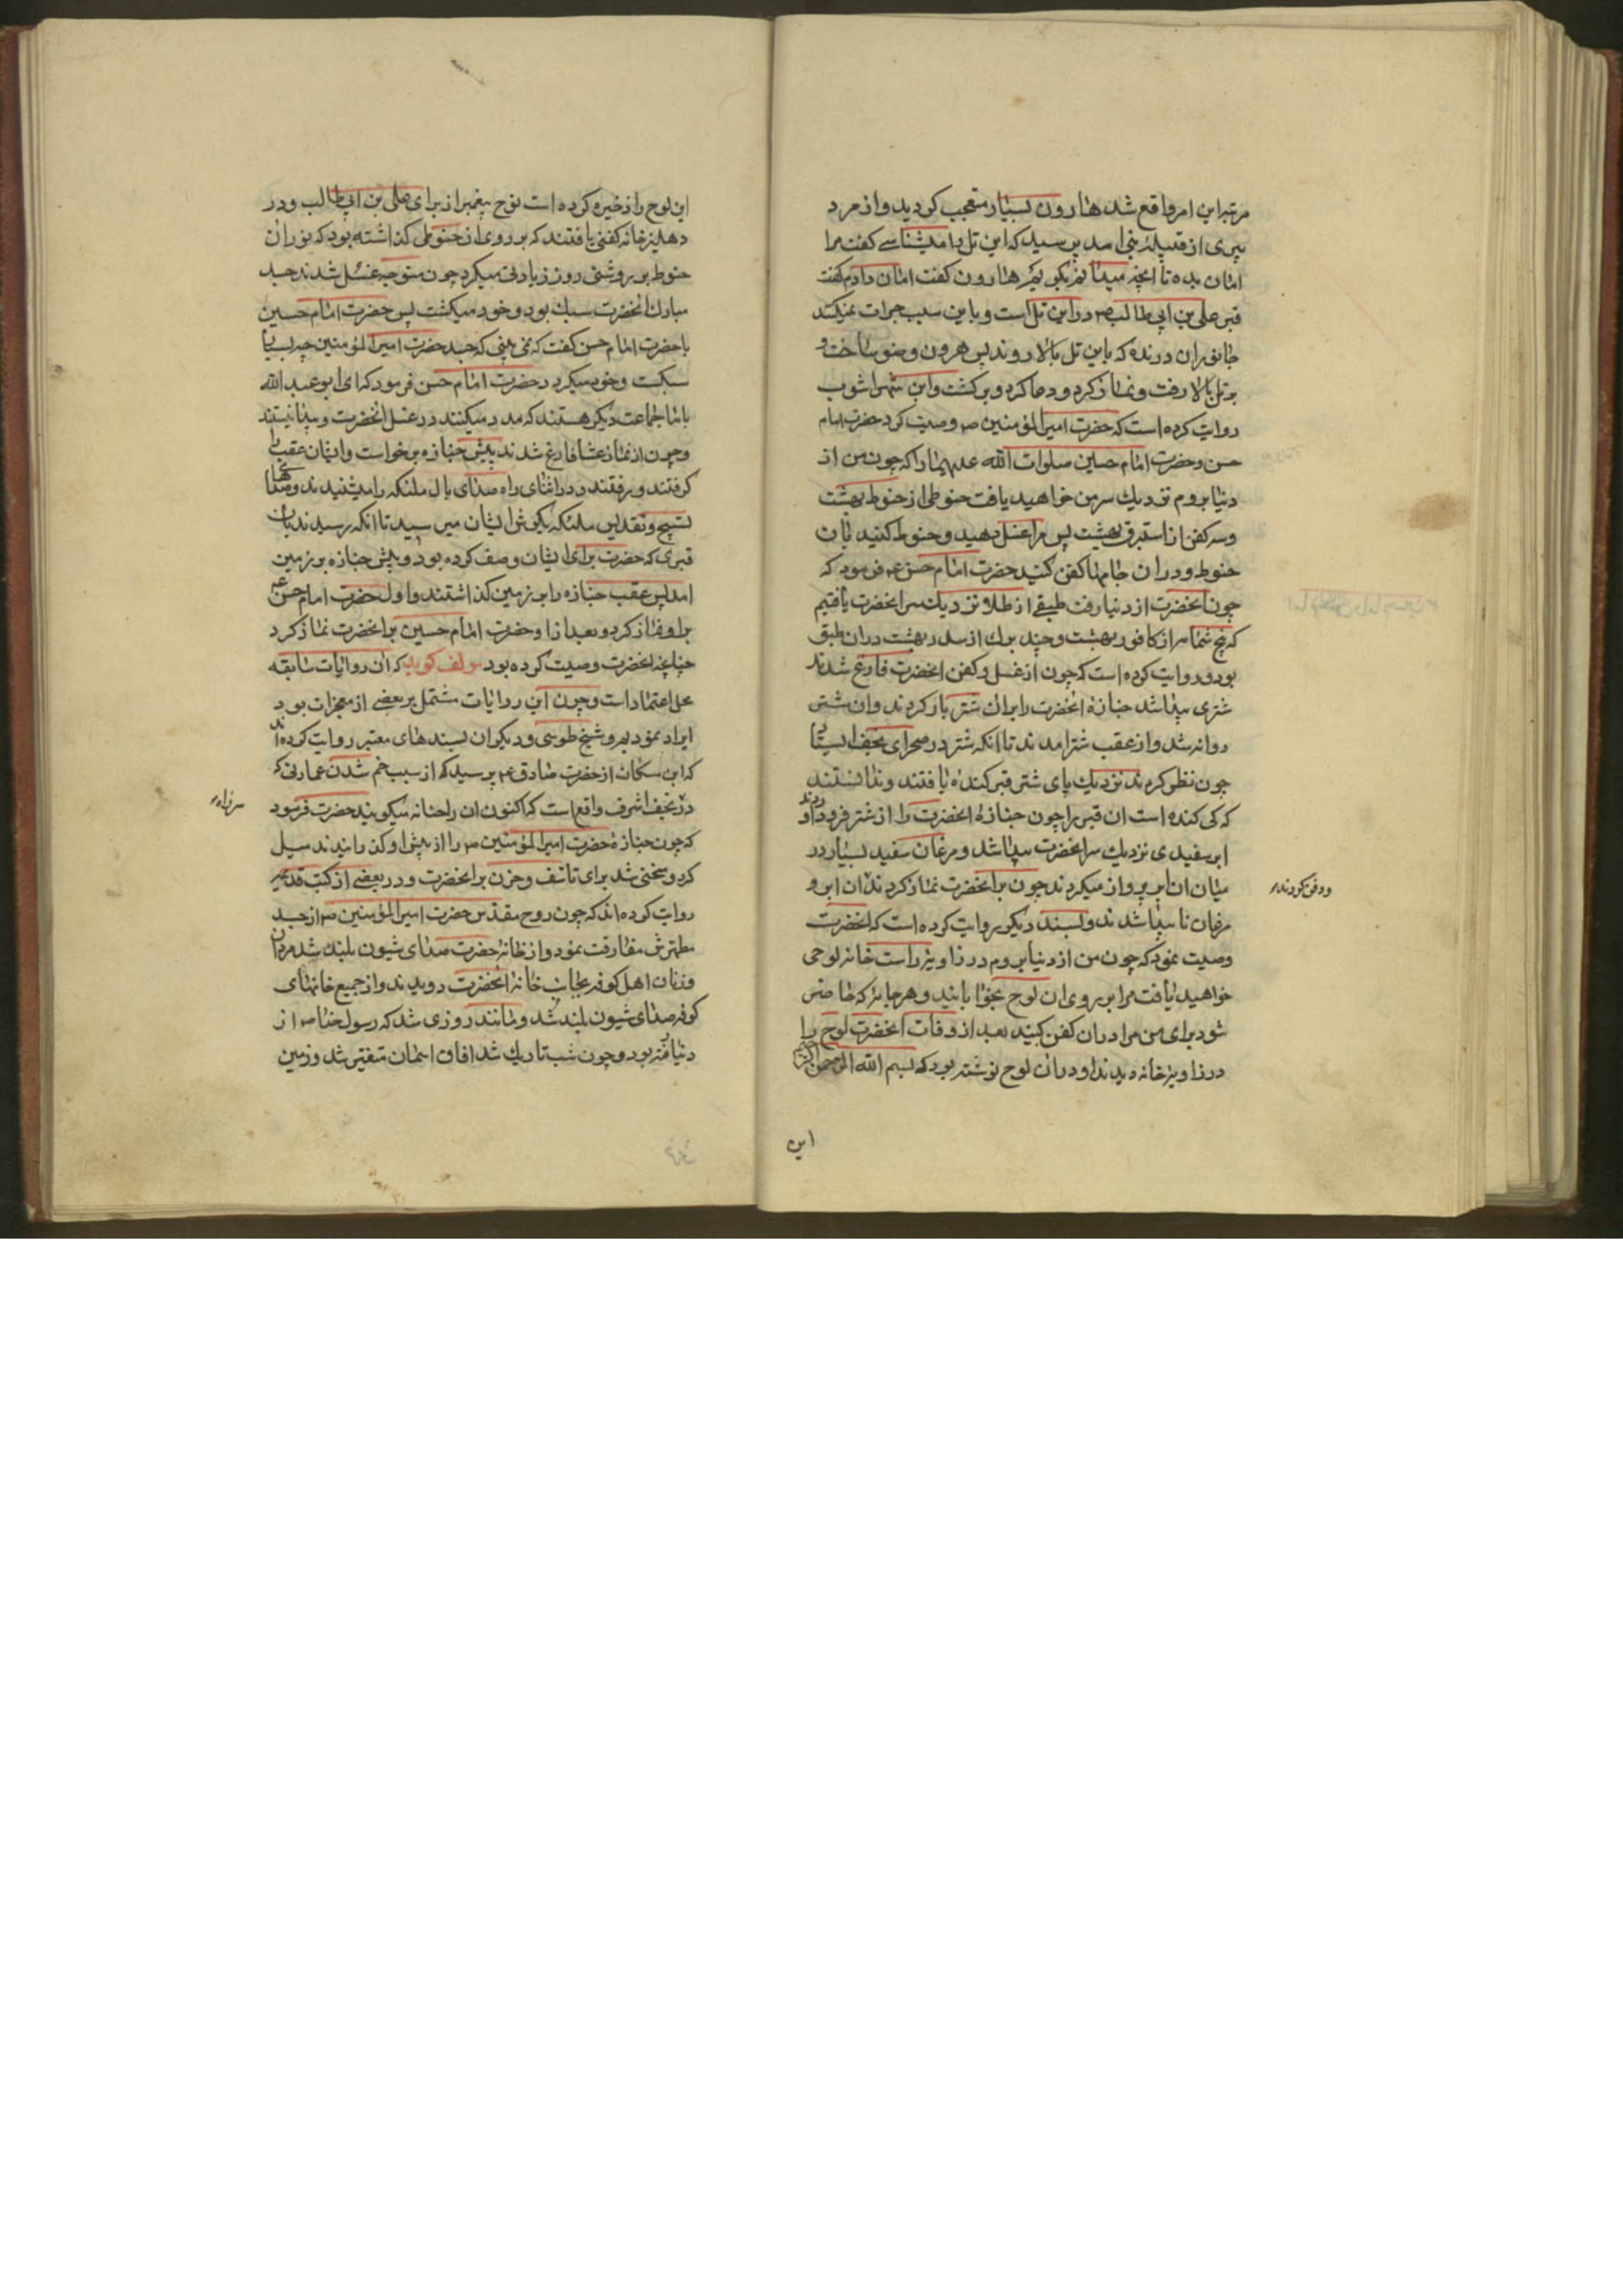 مرتبه این امر واقع شد هارون بسیار متعجب کردید و از مرد
پیری از قبیلهٔ بنی اسد پرسید که این تل را میشناسی کفت مرا
امان بده تا آنچه میدانم بکویم هارون کفت امان دادم کفت
قبر علی بن ابی طالب ص در این تل است و باین سبب جرات نمیکنند
جانوران درنده که باین تل بالا روند پس هرون وضو ساخت و
بر تل بالا رفت و نماز کرد و دعا کرد و برکشت و ابن شهراشوب
روایت کرده است که حضرت امیر المؤمنین ص وصیت کرد حضرت امام
حسن و حضرت امام حسین صلوات الله علیهما را که چون من از
دنیا بروم نزدیك سر من خواهید یافت حنوطی از حنوط بهشت
و سه کفن از استبرق بهشت پس مرا غسل دهید و حنوط کنید بان
حنوط و در ان جامها کفن کنید حضرت امام حسن ع فرمود که
چون انحضرت از دنیا رفت طبقی از طلا نزدیك سر انحضرت یافتیم
که پنج شمامه از کافور بهشت و چند برك از سدر بهشت در ان طبق
بود و روایت کرده است که چون از غسل و کفن انحضرت فارغ شدند
شتری پیدا شد جنازهٔ انحضرت را بر ان شتر بار کردند و ان شتر
روانه شد و از عقب شتر امدند تا انکه شتر در صحرای نجف ایستاد
چون نظر کردند نزدیك پای شتر قبر کنده یافتند و ندانستند
که کی کنده است ان قبر را چون جنازهٔ انحضرت را از شتر فرود اوردند
ابر سفیدی نزدیك سر انحضرت پیدا شد و مرغان سفید بسیار در
میان ان ابر پرواز میکردند چون بر انحضرت نماز کردند ان ابر و
ودفن کردند
مرغان ناپیدا شدند و بسند دیکر روایت کرده است که انحضرت
وصیت نمود که چون من از دنیا بروم در زاویهٔ راست خانه لوحی
خواهید یافت مرا بر روی ان لوح بخوابانید و هر جامهٔ که حاضر
شود برای من مرا در ان کفن کنید بعد از وفات انحضرت لوح را
در زاویهٔ خانه دیدند و در ان لوح نوشته بود که بسم الله الرحمن الرحیم
این
این لوح را ذخیره کرده است نوح پیغمبر از برای علی بن ابی طالب و در
دهلیز خانه کفنی یافتند که بر روی ان حنوطی کذاشته بود که نور ان
حنوط بر روشنی روز زیادتی میکرد چون متوجه غسل شدند جسد
مبارك انحضرت سبك بود و خود میکشت پس حضرت امام حسین
با حضرت امام حسن کفت که نمی بینی که جسد حضرت امیر المؤمنین چه بسیار
سبکست و خود میکردد حضرت امام حسن فرمود که ای ابو عبد الله
با ما جماعت دیکر هستند که مدد میکنند در غسل انحضرت و پیدا نیستند
و چون از نماز عشا فارغ شدند پیش جنازه برخواست و ایشان عقب را
کرفتند و رفتند و در اثنای راه صدای بال ملئکه را میشنیدند و صداهای
تسبیح و تقدیس ملئکه بکوش ایشان میرسید تا انکه رسیدند بان
قبری که حضرت برای ایشان وصف کرده بود و پیش جنازه بر زمین
امد پس عقب جنازه را بر زمین کذاشتند و اول حضرت امام حسن ع
بر او نماز کرد و بعد از او حضرت امام حسین بر انحضرت نماز کرد
چنانچه انحضرت وصیت کرده بود مولف کوید که ان روایات سابقه
محل اعتماد است و چون این روایات مشتمل بر بعضی از معجزات بود
ایراد نمودیم و شیخ طوسی و دیکران بسندهای معتبر روایت کرده اند
که ابن سکان از حضرت صادق ع پرسید که از سبب خم شدن عمارتی که
سر راه
در نجف اشرف واقع است که اکنون ان را حنانه میکویند حضرت فرمود
که چون جنازهٔ حضرت امیر المؤمنین ص را از پیش او کذرانیدند میل
کرد و منحنی شد برای تاسف و حزن بر انحضرت و در بعضی از کتب قدیمه
روایت کرده اند که چون روح مقدس حضرت امیر المؤمنین ص از جسد
مطهرش مفارقت نمود و از خانه حضرت صدای شیون بلند شد مردان
و زنان اهل کوفه بجانب خانهٔ انحضرت دویدند و از جمیع خانهای
کوفه صدای شیون بلند شد و مانند روزی شد که رسول خدا ص از
دنیا رفته بود و چون شب تاریك شد افاق اسمان متغیر شد و زمین